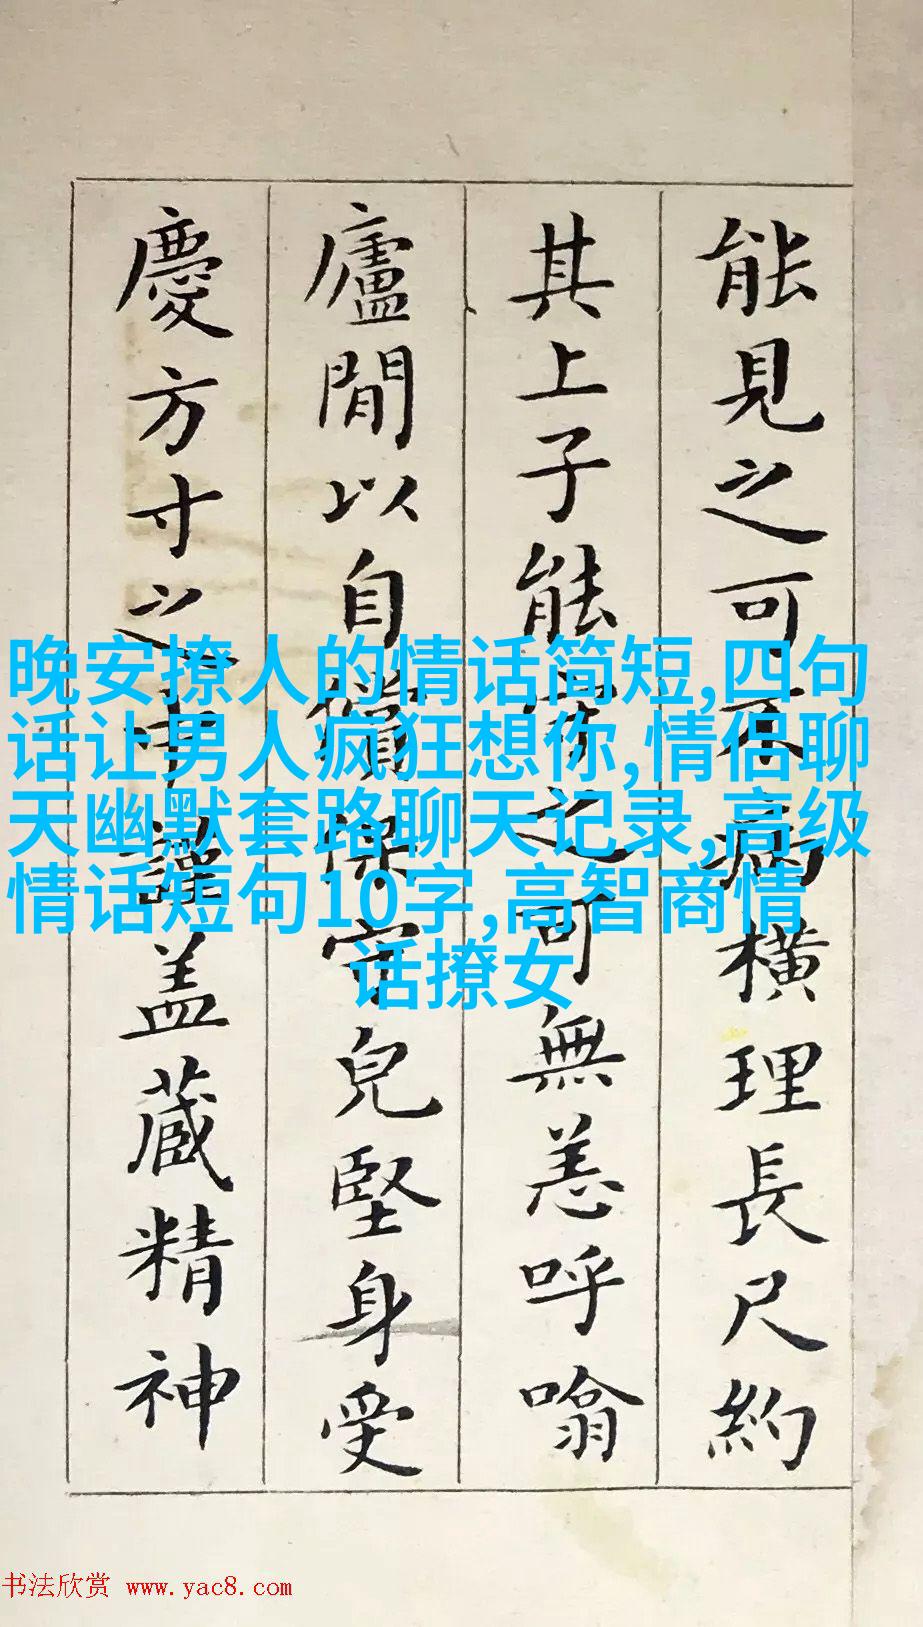 能見之可不病橫理長尺約
其上子能守之可無恙呼噏
廬閒以自償保守兒堅身受
慶方寸之中謹盖藏精神
晚安撩人的情话简短,四句
话让男人疯狂想你,情侣聊
天幽默套路聊天记录,高级
情话短句10字,高智商情
话撩女
书法欣赏 www.yac8.com